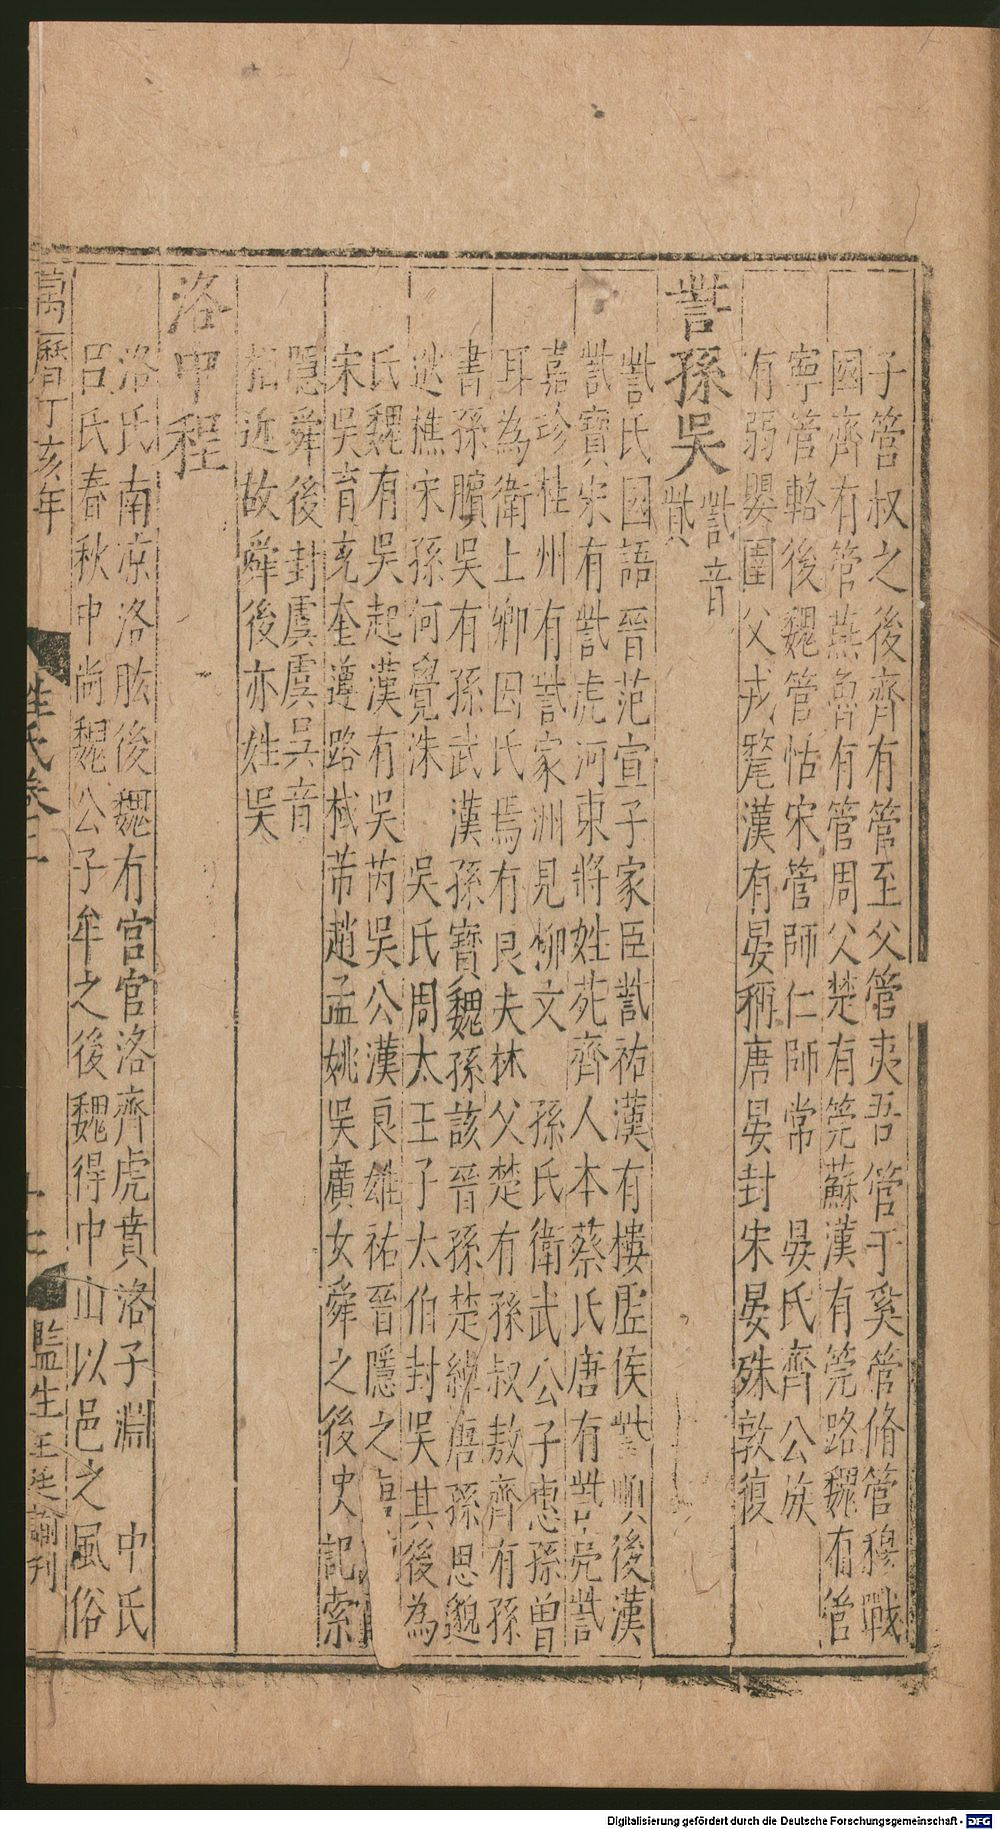 子管叔之後齊有管至父管夷吾管于奚管脩管穆戰
國齊有管燕魯有管周父楚有筦蘇漢有筦路魏有管
寧管輅後魏管恬宋管師仁師常 晏氏齊公族
有弱嬰圉父戎氂漢有晏稱唐晏封宋晏殊敦復
訾孫吳 訾音貲
訾氏國語晉范宣子家臣訾祐漢有樓虛侯訾順後漢
訾寶宋有訾虎河東將姓苑齊人本蔡氏唐有訾亮訾
嘉珍桂州有訾家洲見柳文 孫氏衛武公子惠孫曾
耳為衛上卿因氏焉有良夫林父楚有孫叔敖齊有孫
書孫臏吳有孫武漢孫寶魏孫該晉孫楚綽唐孫思邈
逖樵宋孫何覺洙 吳氏周太王子太伯封吳其後為
氏魏有吳起漢有吳芮吳公漢良雄祐晉隱之
宋吳育充奎遵路栻芾趙孟姚吳廣女舜之後史記索
隱舜後封虞虞吳音
相近故舜後亦姓吳
洛中程
洛氏南凉洛肱後魏有宦官洛齊虎賁洛子淵 中氏
呂氏春秋中尚魏公子牟之後魏得中山以邑之風俗
萬曆丁亥年 姓氏卷二 十七 監生王廷諭刊
Digitalisierung gefördert durch die Deutsche Forschungsgemeinschaft - DFG